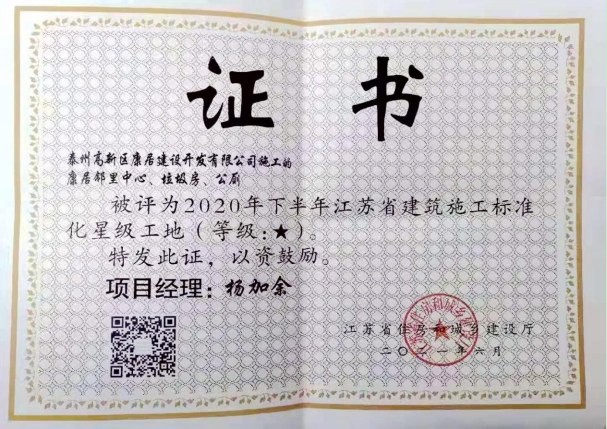 证书
泰州高新区康居建设开发有限公司施工的
康居邻里中心、垃圾房、公厕
被评为2020年下半年江苏省建筑施工标准
化星级工地（等级:★）。
特发此证，以资鼓励。
项目经理：杨加余
江苏省住房和城乡建设厅
二〇二一年六月